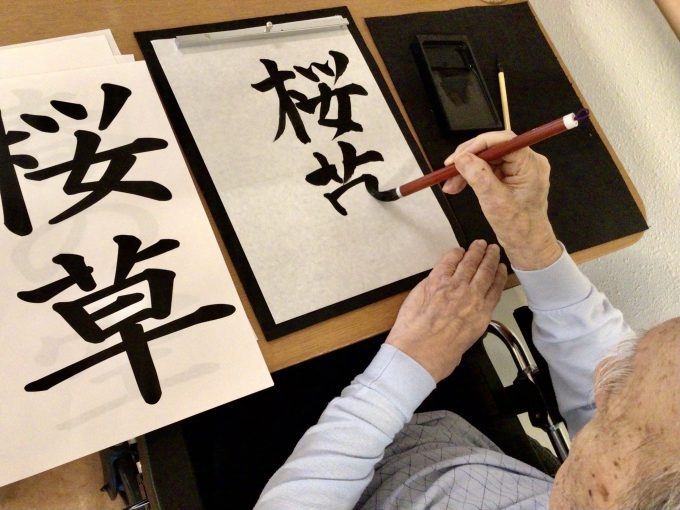 桜草
桜